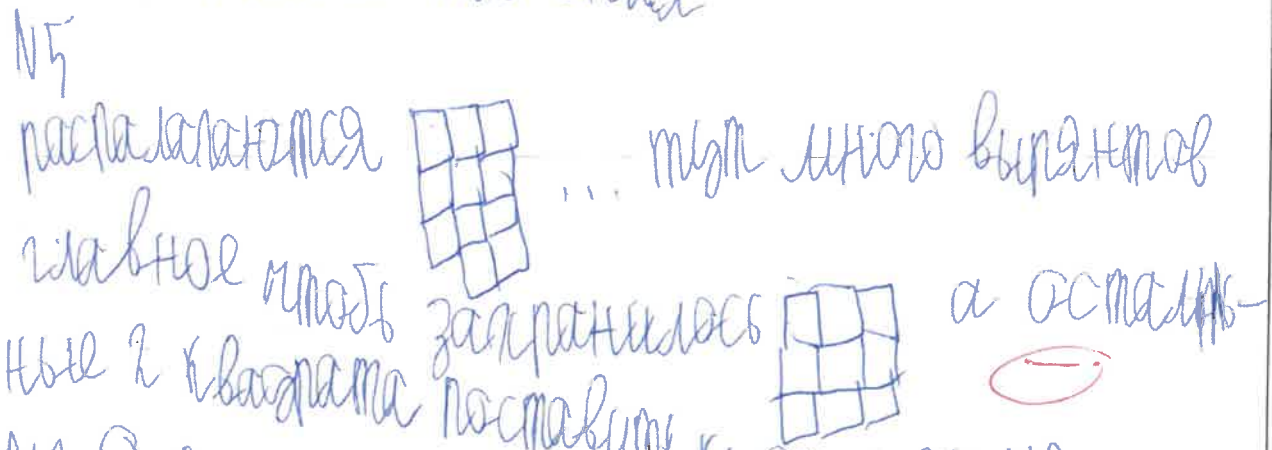 N5
распалагаются ... тут много вырянтов
главное чтоб захранилось а осталь-
ные 2 квадрата поставить